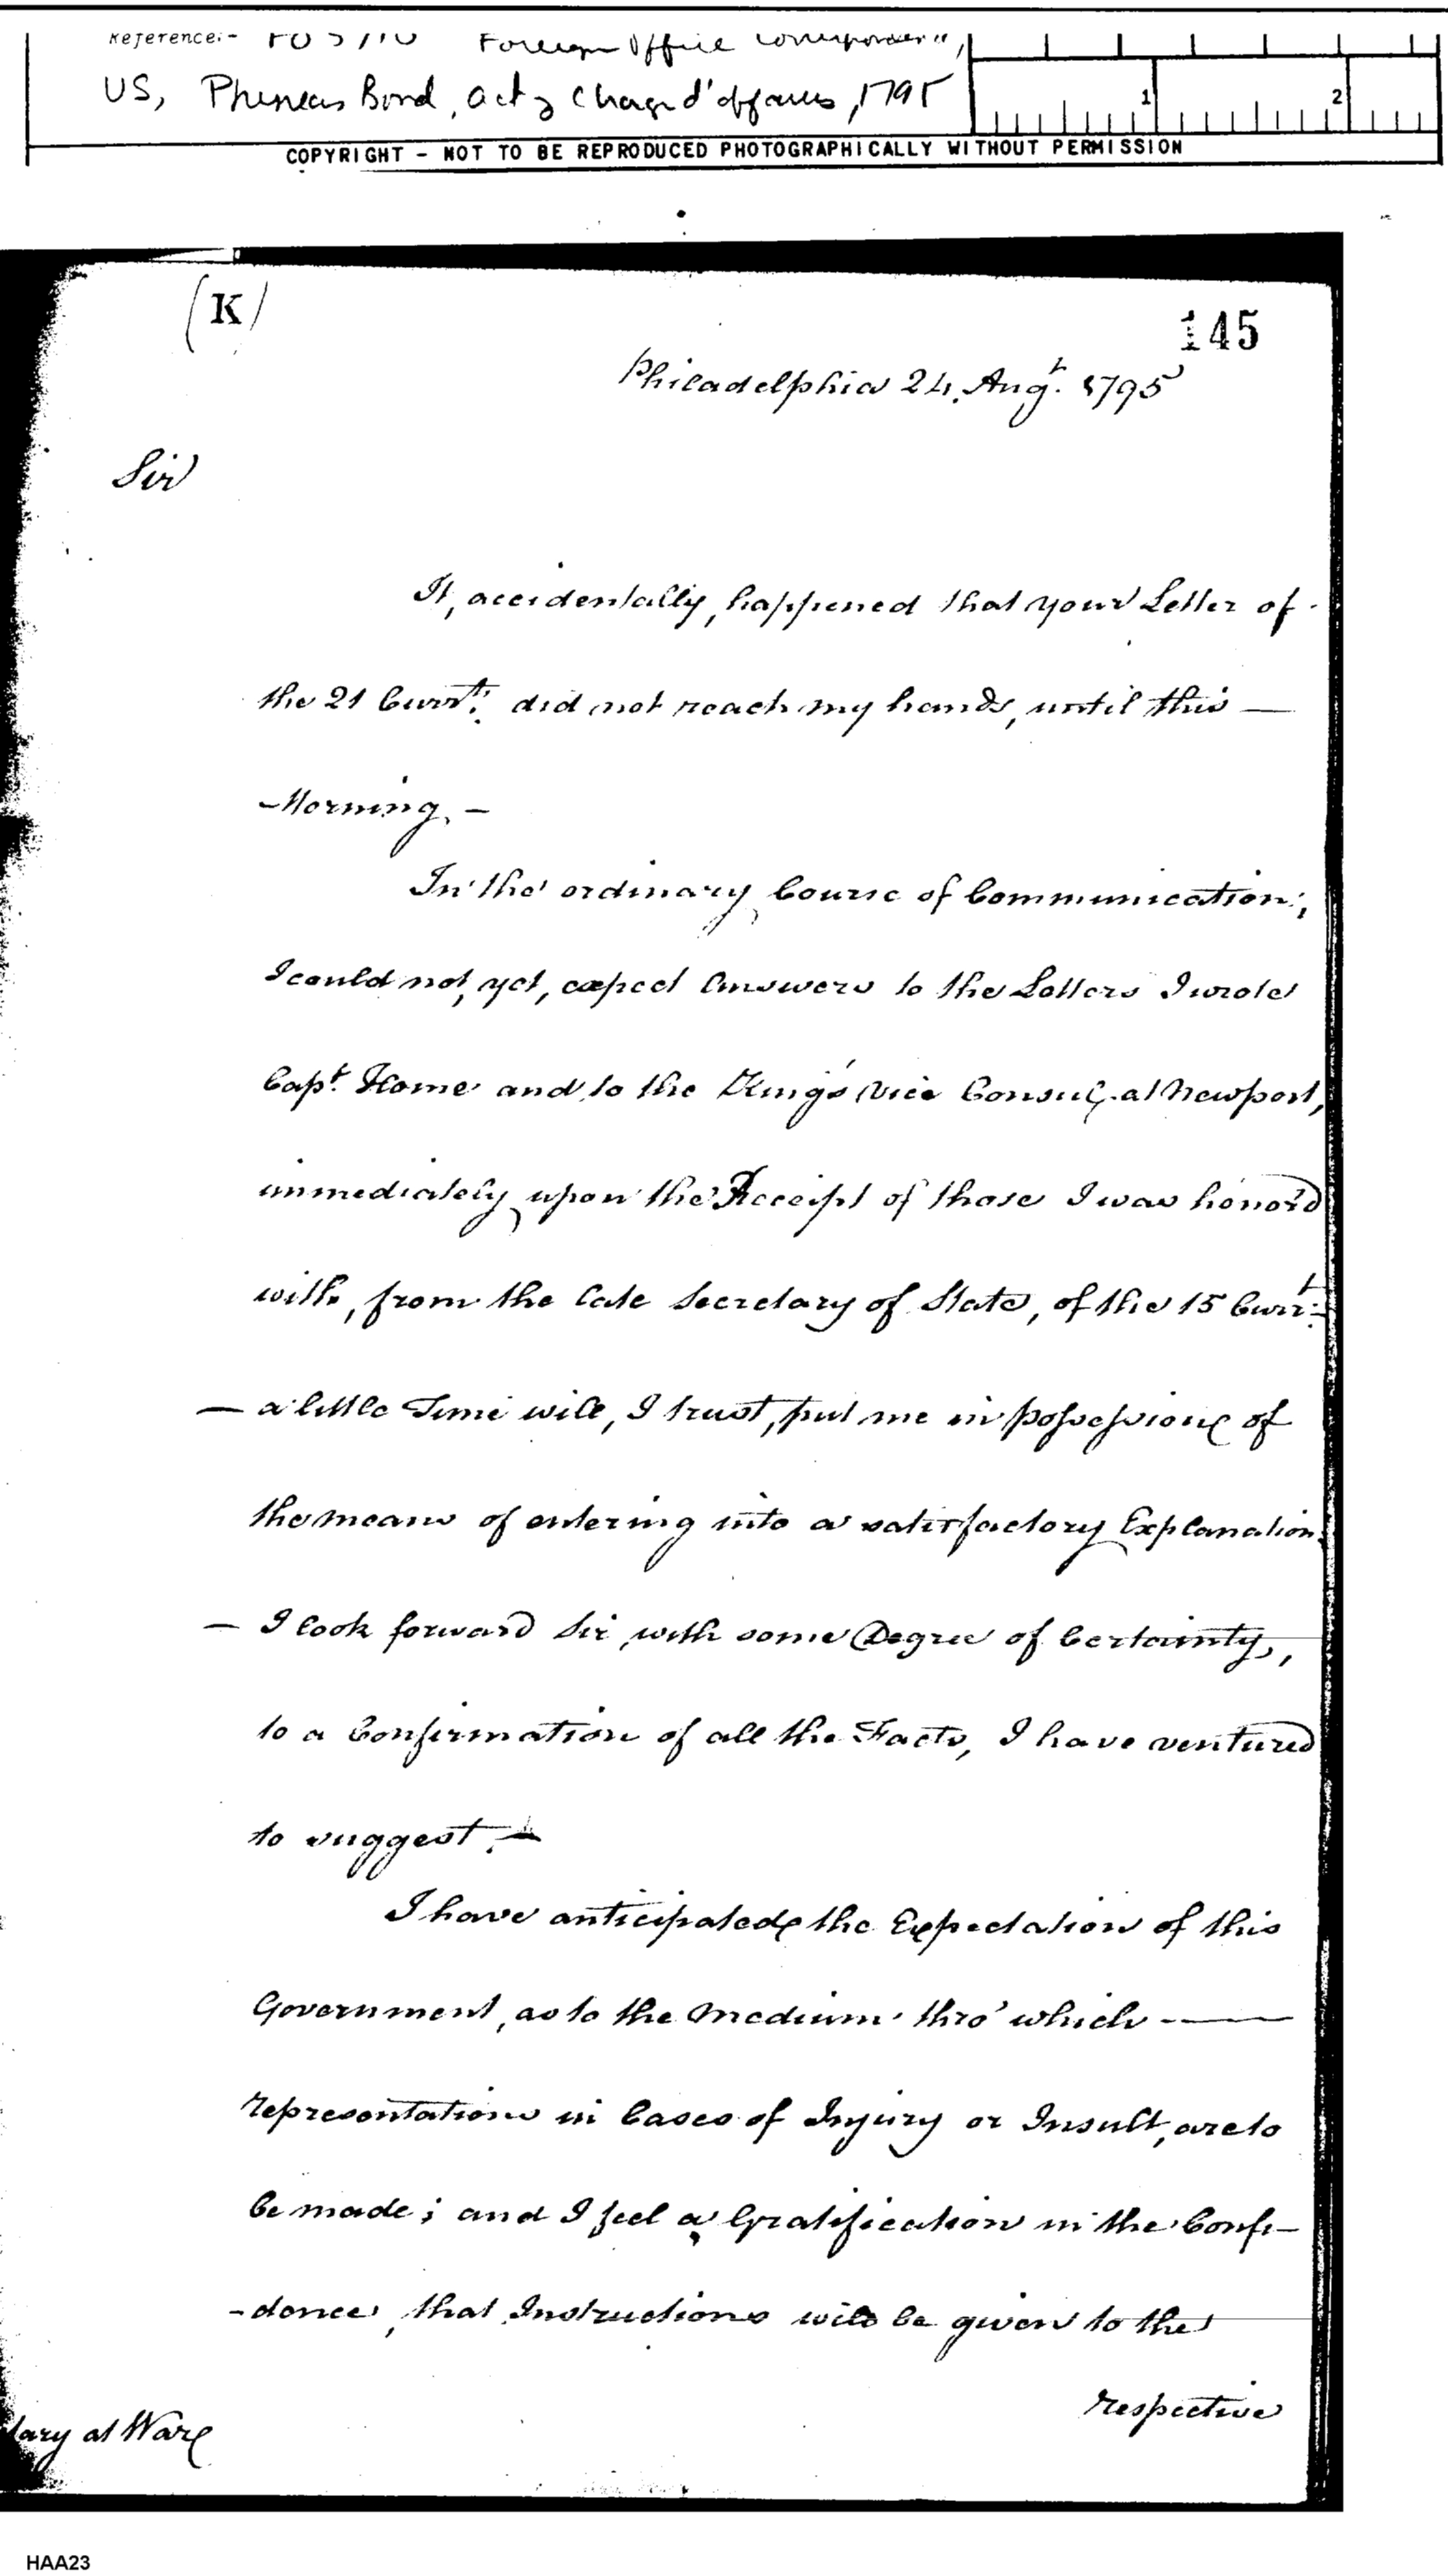 Reference:- FO 5/10 Foreign Office
US, Phineas Bond, actg Chargé d'affaires, 1795
1 2
COPYRIGHT - NOT TO BE REPRODUCED PHOTOGRAPHICALLY WITHOUT PERMISSION
(K)
145
Philadelphia 24. Augt. 1795
Sir
It, accidentally, happened that your Letter of
the 21 Currt. did not reach my hands, until this —
Morning. —
In the ordinary Course of Communication,
I could not, yet, expect Answers to the Letters I wrote
Capt. Home and to the King's Vice Consul at Newport,
immediately upon the Receipt of those I was honor'd
with, from the late Secretary of State, of the 15 Currt:
— a little Time will, I trust, put me in possession of
the means of entering into a satisfactory Explanation.
— I look forward Sir, with some Degree of Certainty,
to a Confirmation of all the Facts, I have ventured
to suggest. —
I have anticipated the Expectation of this
Government, as to the Medium thro' which —
representations in Cases of Injury or Insult, are to
be made; and I feel a Gratification in the Confi-
-dence, that Instructions will be given to the
respective
tary at War
HAA23